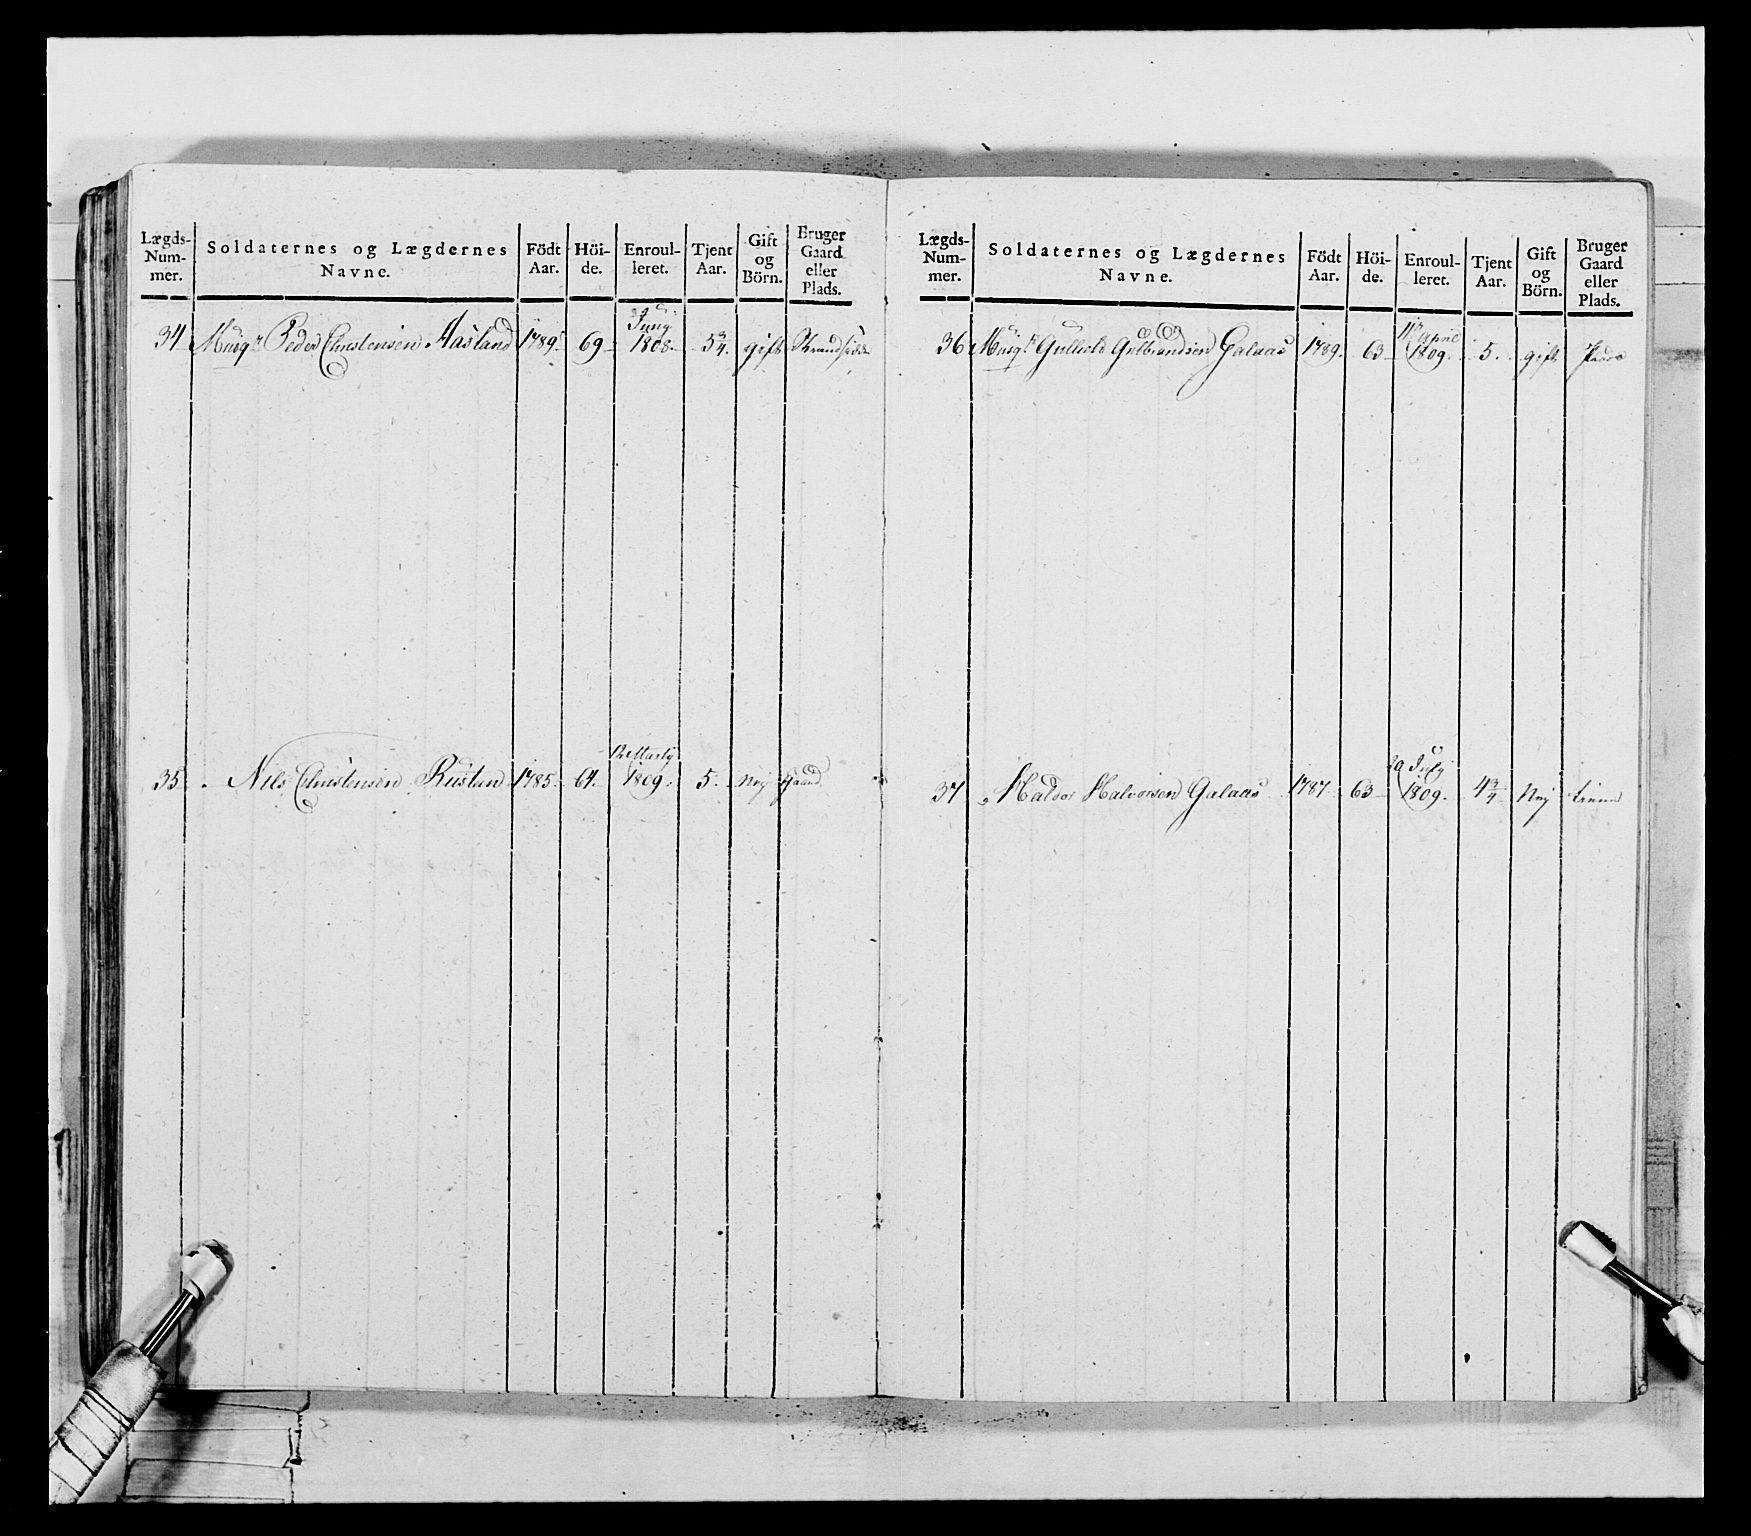 Lægds-Num-mer. Soldaternes og Lægdernes Navne. Födt Aar. Höi-de. Enroul-leret. Tjent Aar. Gift og Börn. Bruger Gaard eller Plads.
34 Musqr Peder Christensen Aasland 1789. 69 Juny 1808. 5 3/4. gift
35 Nils Christensen Rustan 1785. 64. Marty 1809. 5. Nej Gaard
Lægds-Num-mer. Soldaternes og Lægdernes Navne. Födt Aar. Höi-de. Enroul-leret. Tjent Aar. Gift og Börn. Bruger Gaard eller Plads.
36 Musqr Gulbrandsen Galaas 1789. 63 April 1809. 5. gift
37 Haldor Halvorsen Galaas 1787. 63 July 1809. 4 3/4 Nej